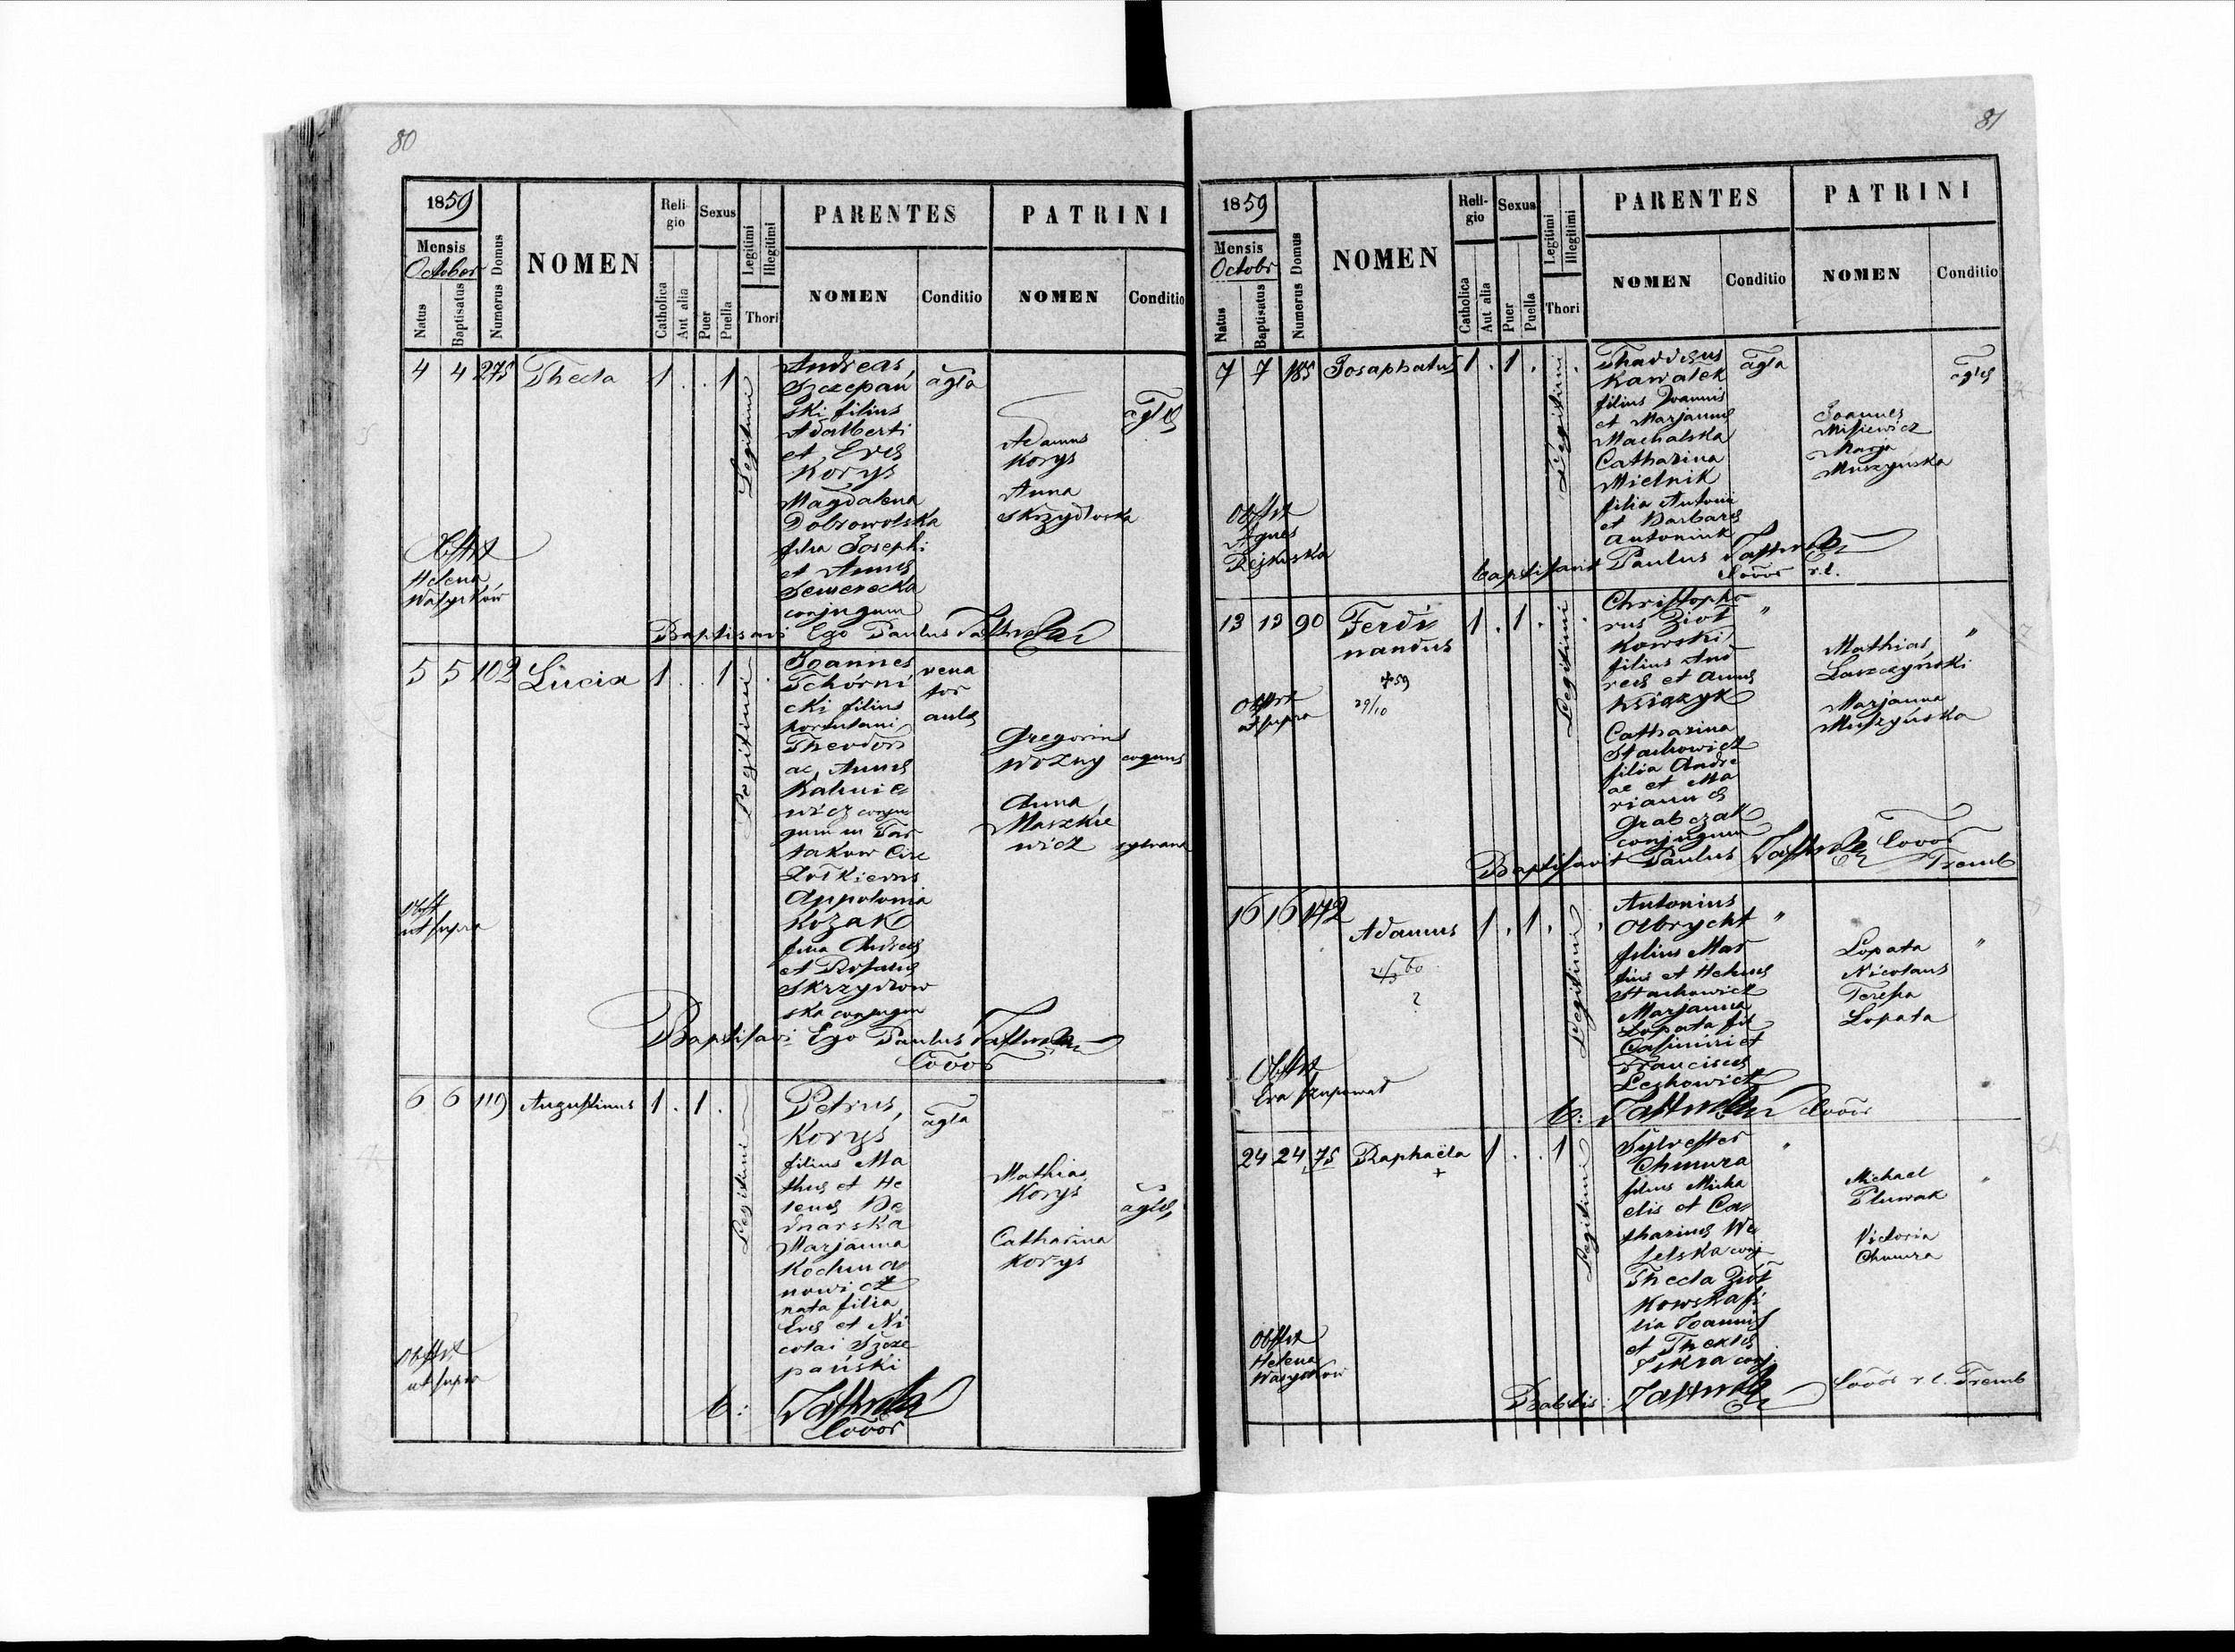 80
1859
Mensis
October
Natus
Baptisatus
Numerus Domus
NOMEN
Religio
Catholica
Aut alia
Sexus
Puer
Puella
Legitimi
Illegitimi
Thori
PARENTES
NOMEN
Conditio
PATRINI
NOMEN
Conditio
4 4 275 Thecla 1 . . 1
Legitimi
Andreas
Szczepań
ski filius
Adalberti
et Evæ
Korys
Magdalena
Dobrowolska
filia Josephi
et Annæ
Semerecka
conjugum
agla
Adamus
Korys
Anna
Skrzydłoska
aglæ
Obstet
Helena
Wasyłków
Baptisavi Ego Paulus
5 5 102 Lucia 1 . . 1
Legitimi
Joannes
Tchórni
cki filius
Theodori
ac Annæ
Kalinie
wicz conju
gum in Tar
takow Circ
Żółkiewns
Appolonia
Kozak
filia Andreæ
et Rosaliæ
Skrzydłow
ska conjugum
vena
tor
aulæ
Gregorius
Woźny
coquus
Anna
Maszkie
wicz
Obst
ut supra
Baptisavi Ego Paulus
Coóor
6 6 119 Augustinus 1 . 1 .
Legitimi
Petrus
Korys
filius Ma
thiæ et He
lenæ Be
dnarska
Marjanna
Kochma
nowicz
nata filia
Evæ et Ni
colai Szcze
pański
agla
Mathias
Korys
Catharina
Korys
aglæ
Obstet
ut supra
b:
Coóor
81
1859
Mensis
Octobr
Natus
Baptisatus
Numerus Domus
NOMEN
Religio
Catholica
Aut alia
Sexus
Puer
Puella
Legitimi
Illegitimi
Thori
PARENTES
NOMEN
Conditio
PATRINI
NOMEN
Conditio
7 7 185 Josaphatus 1 . 1 .
Legitimi
Thaddeus
Kawałek
filius Joannis
et Marjannæ
Machalska
Catharina
Mielnik
filia Antonii
et Barbaræ
Antoniuk
agla
Joannes
Misiewicz
Marja
Muszyńska
aglæ
Obstet
Agnes
baptisavit Paulus
Coóor r. l.
13 13 90 Ferdi
nandus
+ 59
29/10
1 . 1 .
Legitimi
Christopho
rus Ziół
kowski
filius And
reæ et Annæ
Książyk
Catharina
Stachowicz
filia Andre
ae et Ma
riannæ
Grabczak
conjugum
"
Mathias
Laszczyński
Marjanna
Muszyńska
"
Obstet
ut supra
Baptisavit Paulus
Coóor
Tremb
16 16 172 Adamus 1 . 1 .
21/3 60
?
Legitimi
Antonius
Olbrycht
filius Mar
tini et Helenæ
Stachowicz
Marjanna
Łopata fil
Casimiri et
Franciscæ
Lechowicz
"
Łopata
Nicolaus
Teresa
Łopata
"
Obstet
Eva
b:
Coóor
24 24 75 Raphaëla 1 . . 1
+
Legitimi
Sylvester
Chmura
filius Micha
elis et Ca
tharinæ We
selska conj
Thecla Ziół
kowska fi
lia Joannis
et Theclæ
Iskra conj.
"
Michael
Pluwak
Victoria
Chmura
"
Obstet
Helena
Wasyłków
Coóor r. l. Tremb